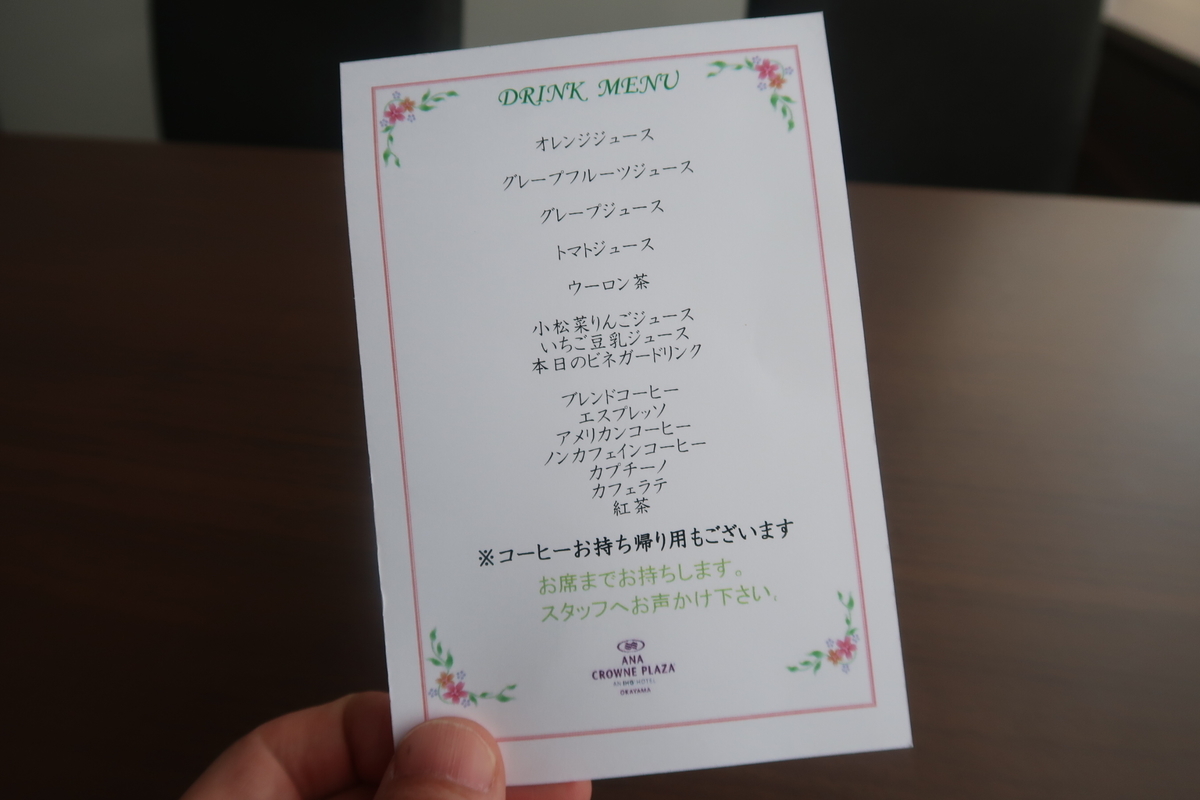 DRINK MENU
オレンジジュース
グレープフルーツジュース
グレープジュース
トマトジュース
ウーロン茶
小松菜りんごジュース
いちご豆乳ジュース
本日のビネガードリンク
ブレンドコーヒー
エスプレッソ
アメリカンコーヒー
ノンカフェインコーヒー
カプチーノ
カフェラテ
紅茶
※コーヒーお持ち帰り用もございます
お席までお持ちします。
スタッフへお声かけ下さい。
ANA
CROWNE PLAZA
AN IHG HOTEL
OKAYAMA